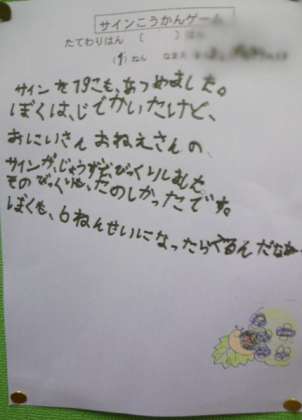 サインこうかんゲーム
たてわりはん ( )はん
(1)ねん なまえ
サインを19こも、あつめました。
ぼくは、じでかいたけど、
おにいさんおねえさんの、
サインが、じょうずでびっくりしました
そのびっくりも、たのしかったです。
ぼくも、6ねんせいになったら、るんだなあ